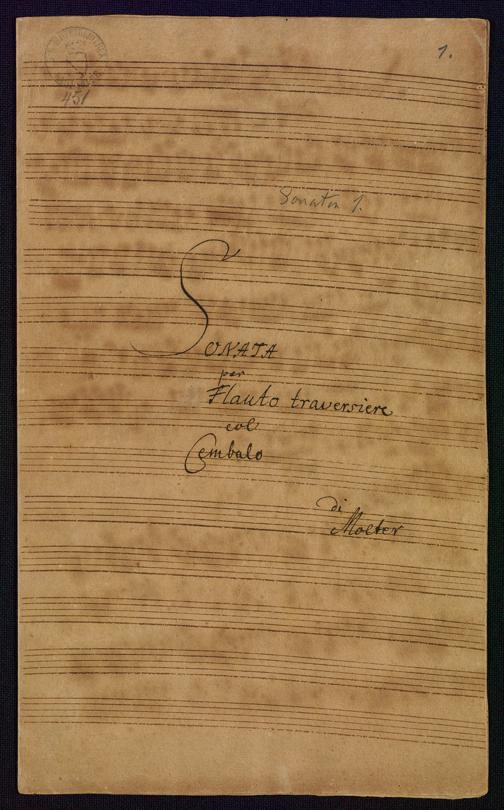 1.
451
Sonata 1.
SONATA
per
Flauto traversiere
col
Cembalo
di
Molter